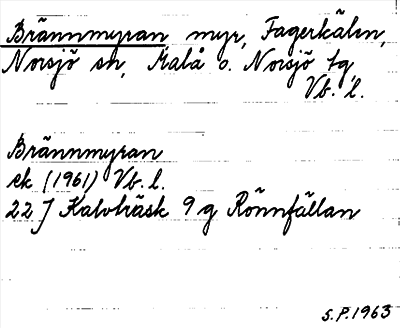 Brännmyran myr, Fagerkälen,
Norsjö sn, Malå o. Norsjö tg
Vb. l.
Brännmyran
ek (1961) Vb. l.
22 J Kalvträsk 9 g Rönnfällan
S.P. 1963